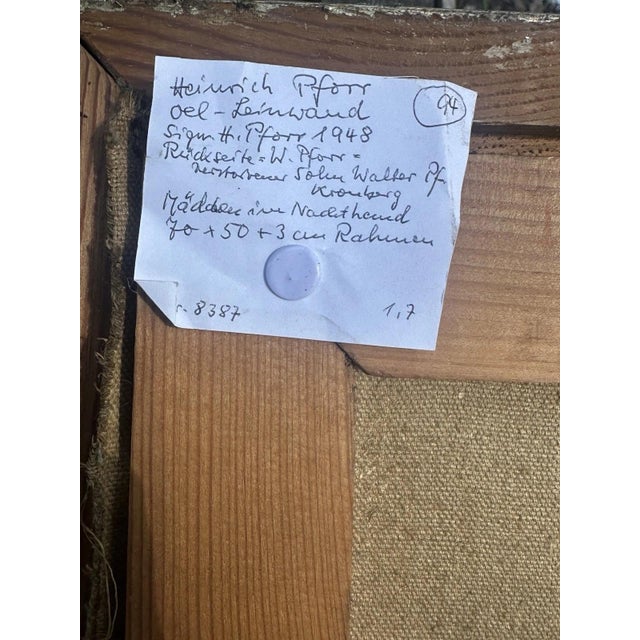 Heinrich Pforr
94
oel - Leinwand
Sign. H. Pforr 1948
Rückseite = W. Pforr =
verstorbener Sohn Walter Pf
Kronberg
Mädchen im Nachthemd
70 x 50 + 3 cm Rahmen
. 8387
1,7